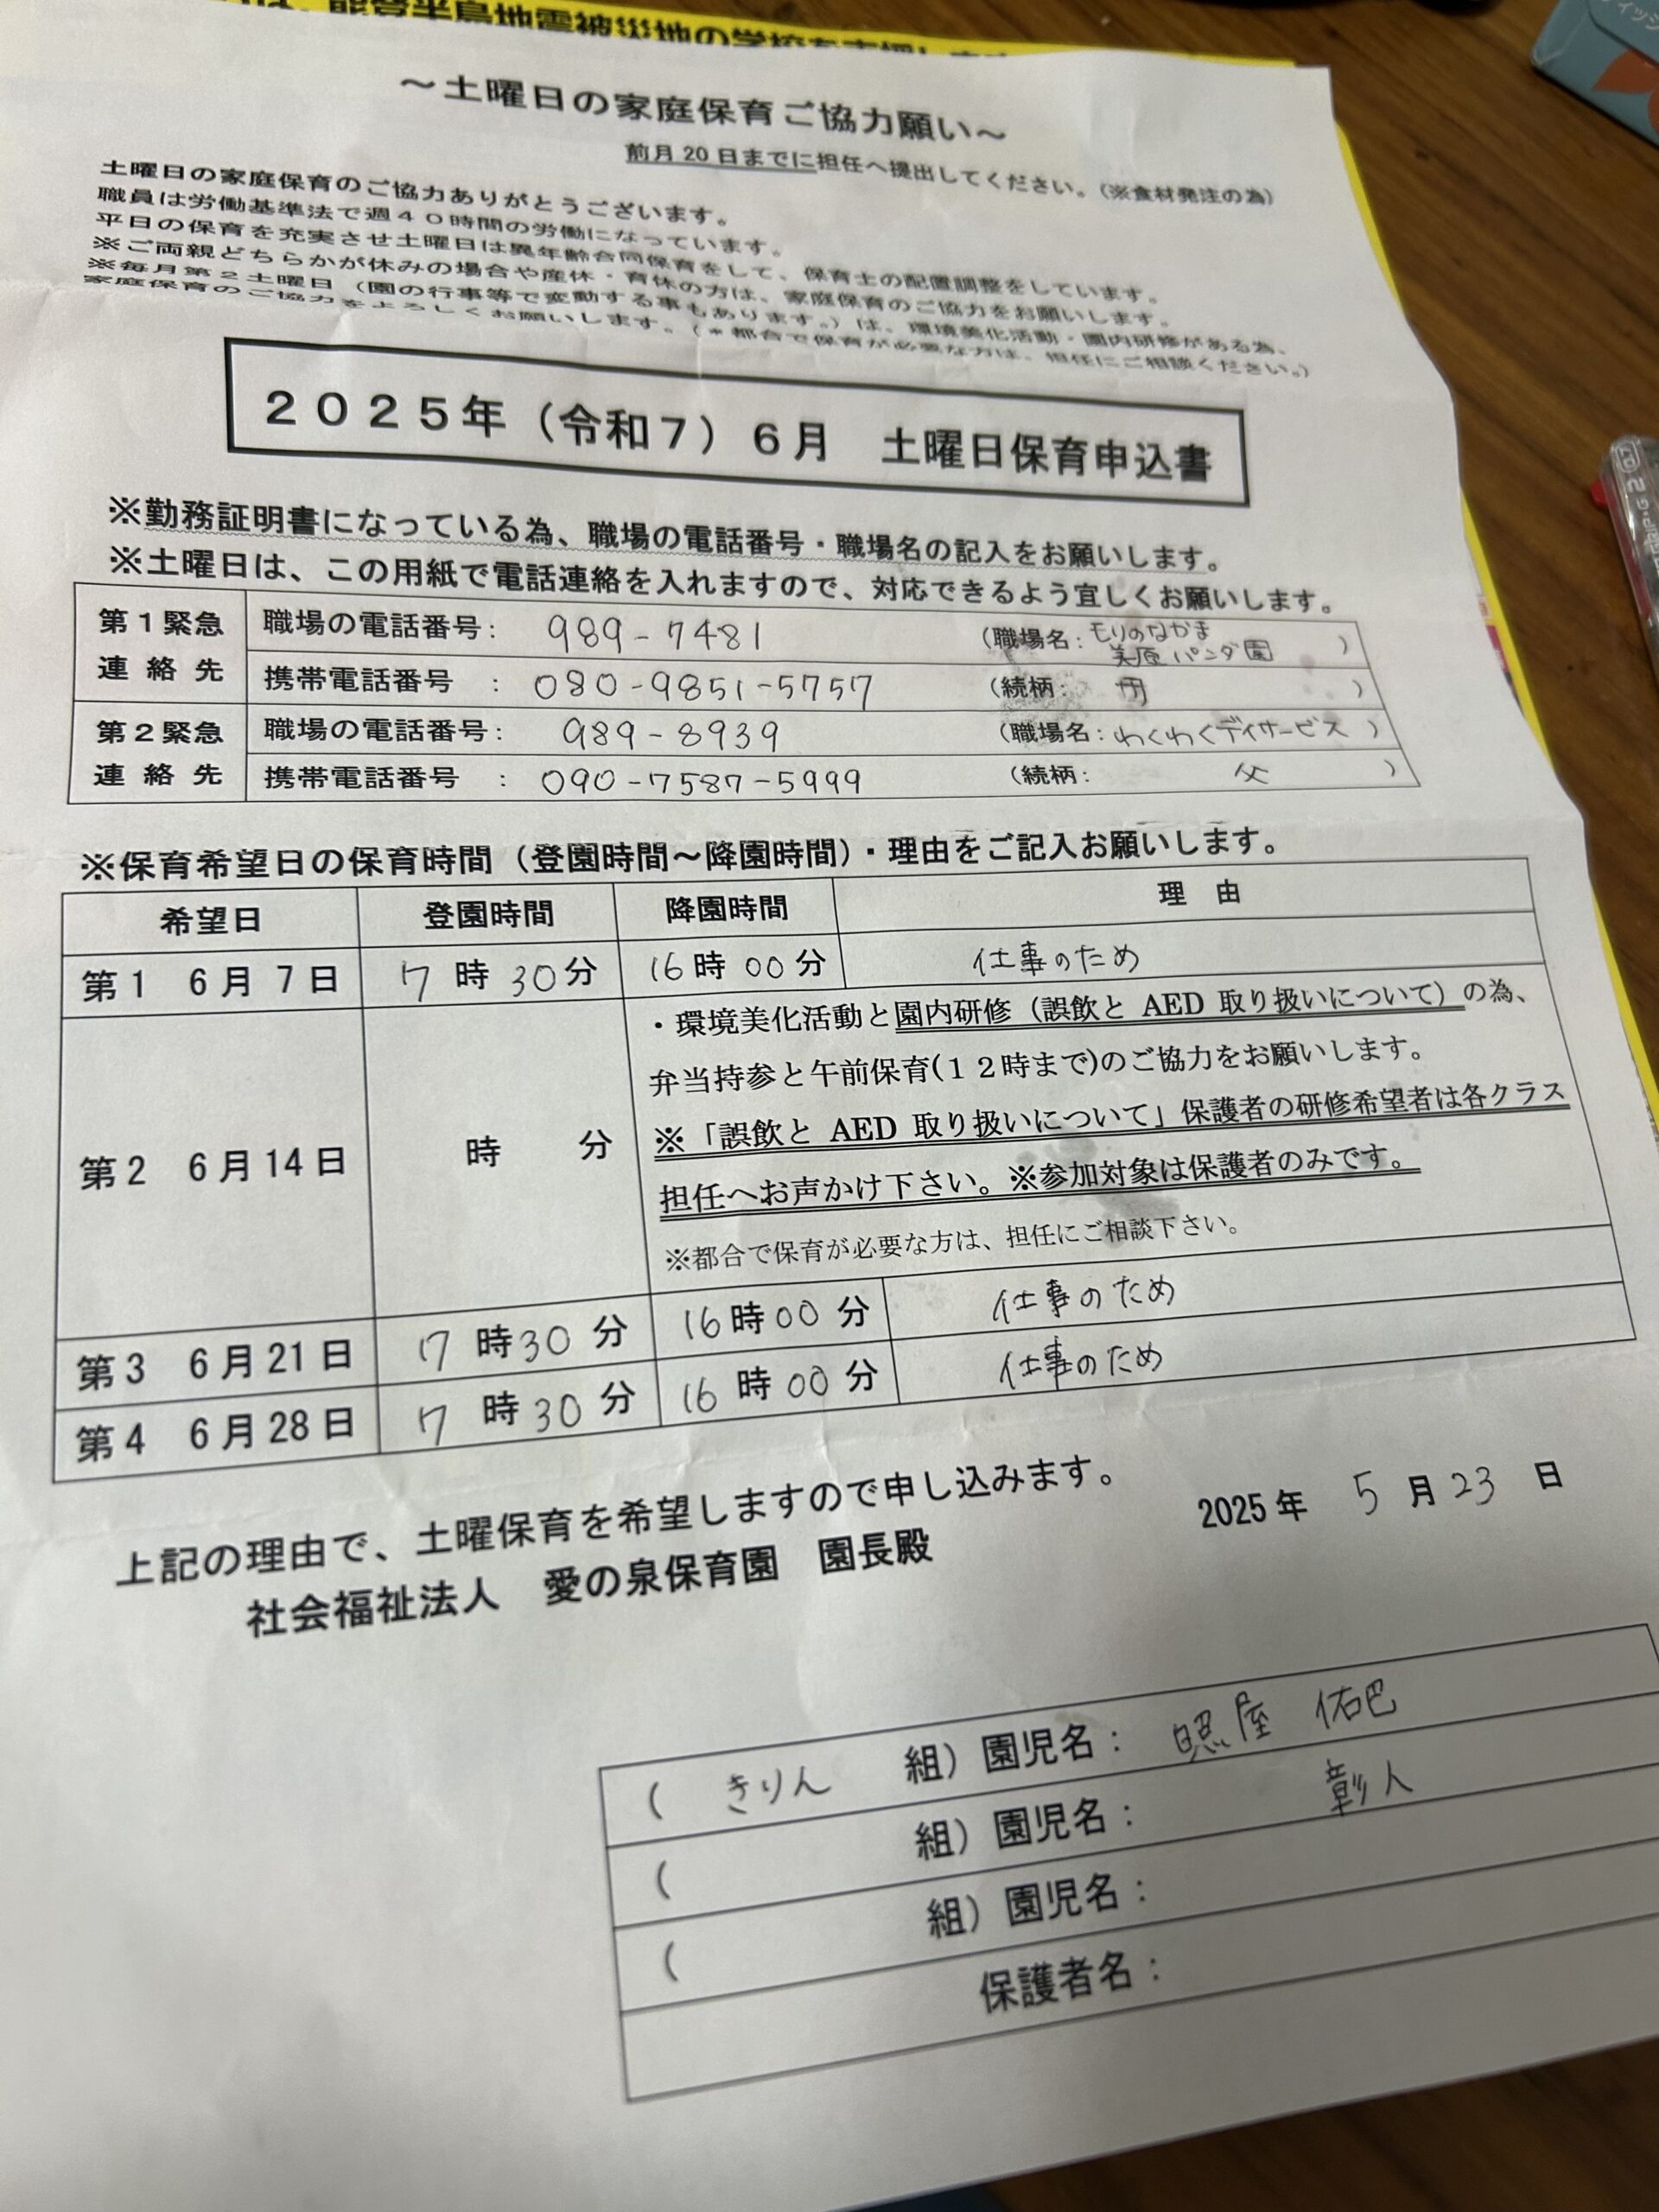 能登半島地震被災地の学校を支援し
～土曜日の家庭保育ご協力願い～
前月20日までに担任へ提出してください。（※食材発注の為）
土曜日の家庭保育のご協力ありがとうございます。
職員は労働基準法で週４０時間の労働になっています。
平日の保育を充実させ土曜日は異年齢合同保育をして、保育士の配置調整をしています。
※ご両親どちらかが休みの場合や産休・育休の方は、家庭保育のご協力をお願いします。
※毎月第２土曜日（園の行事等で変動する事もあります。）は、環境美化活動・園内研修がある為、
家庭保育のご協力をよろしくお願いします。（＊都合で保育が必要な方は、担任にご相談ください。）
２０２５年（令和７）６月　土曜日保育申込書
※勤務証明書になっている為、職場の電話番号・職場名の記入をお願いします。
※土曜日は、この用紙で電話連絡を入れますので、対応できるよう宜しくお願いします。
第１緊急連絡先 職場の電話番号： 989-7481 （職場名：もりのなかま 美原パンダ園）
携帯電話番号 ： 080-9851-5757 （続柄： ）
第２緊急連絡先 職場の電話番号： 989-8939 （職場名：わくわくデイサービス）
携帯電話番号 ： 090-7587-5999 （続柄： 父 ）
※保育希望日の保育時間（登園時間～降園時間）・理由をご記入お願いします。
希望日 登園時間 降園時間 理　由
第１ 6月 7日 7時30分 16時00分 仕事のため
第２ 6月14日 時 分
・環境美化活動と園内研修（誤飲と AED 取り扱いについて）の為、
弁当持参と午前保育(１２時まで)のご協力をお願いします。
※「誤飲と AED 取り扱いについて」保護者の研修希望者は各クラス
担任へお声かけ下さい。※参加対象は保護者のみです。
※都合で保育が必要な方は、担任にご相談下さい。
第３ 6月21日 7時30分 16時00分 仕事のため
第４ 6月28日 7時30分 16時00分 仕事のため
上記の理由で、土曜保育を希望しますので申し込みます。
2025年 5月23日
社会福祉法人　愛の泉保育園　園長殿
（ きりん 組）園児名： 照屋 佑巴
（ 組）園児名： 彰人
（ 組）園児名：
保護者名：